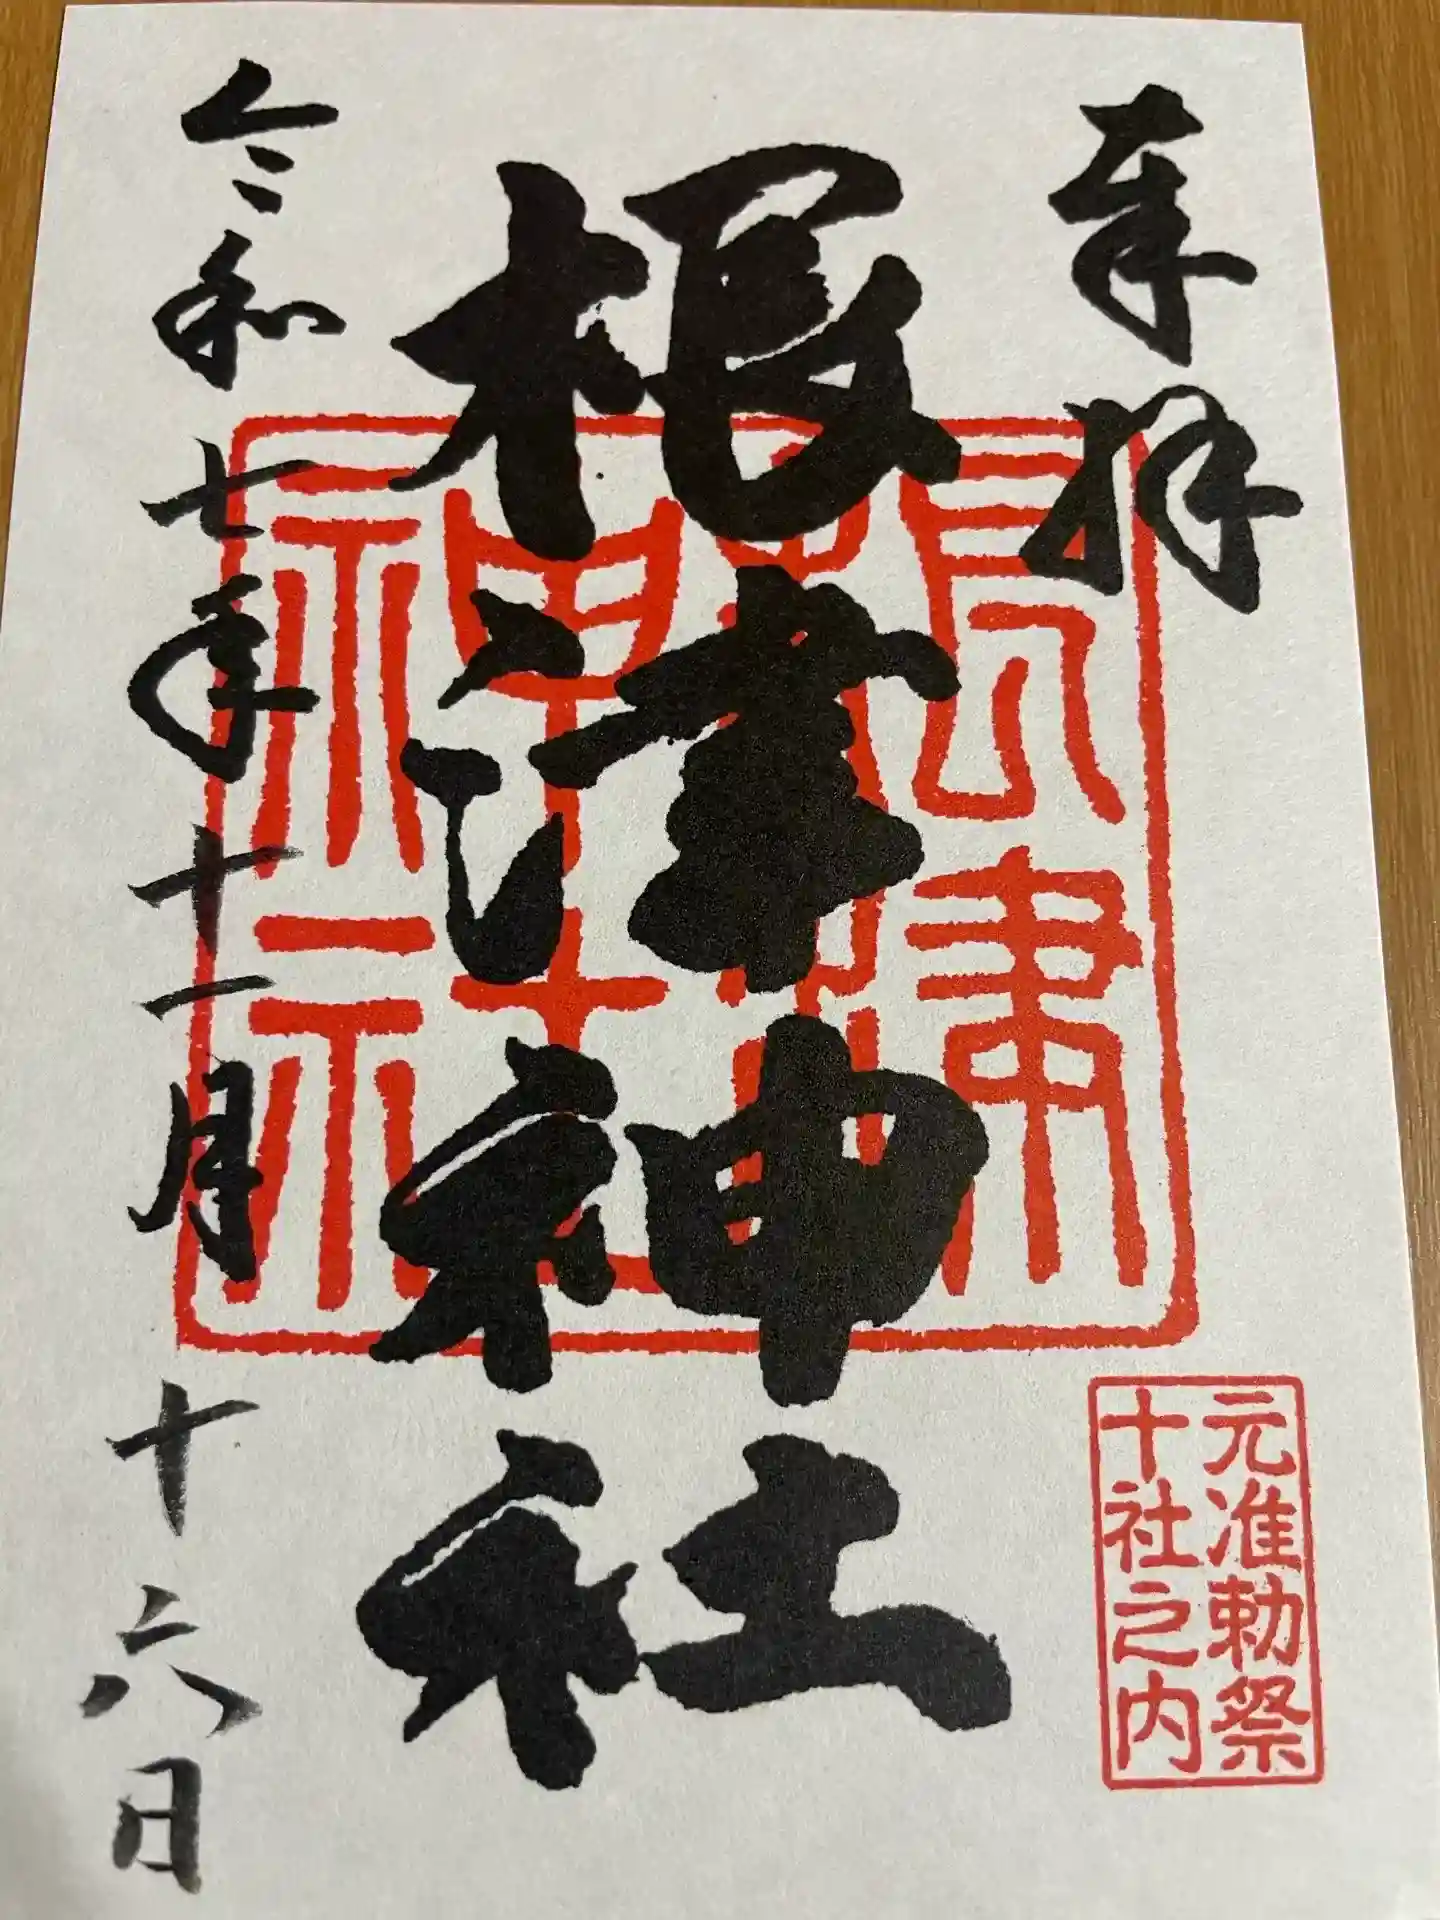 奉拝
根津神社
根津神社
元准勅祭
十社之内
令和七年十一月十六日